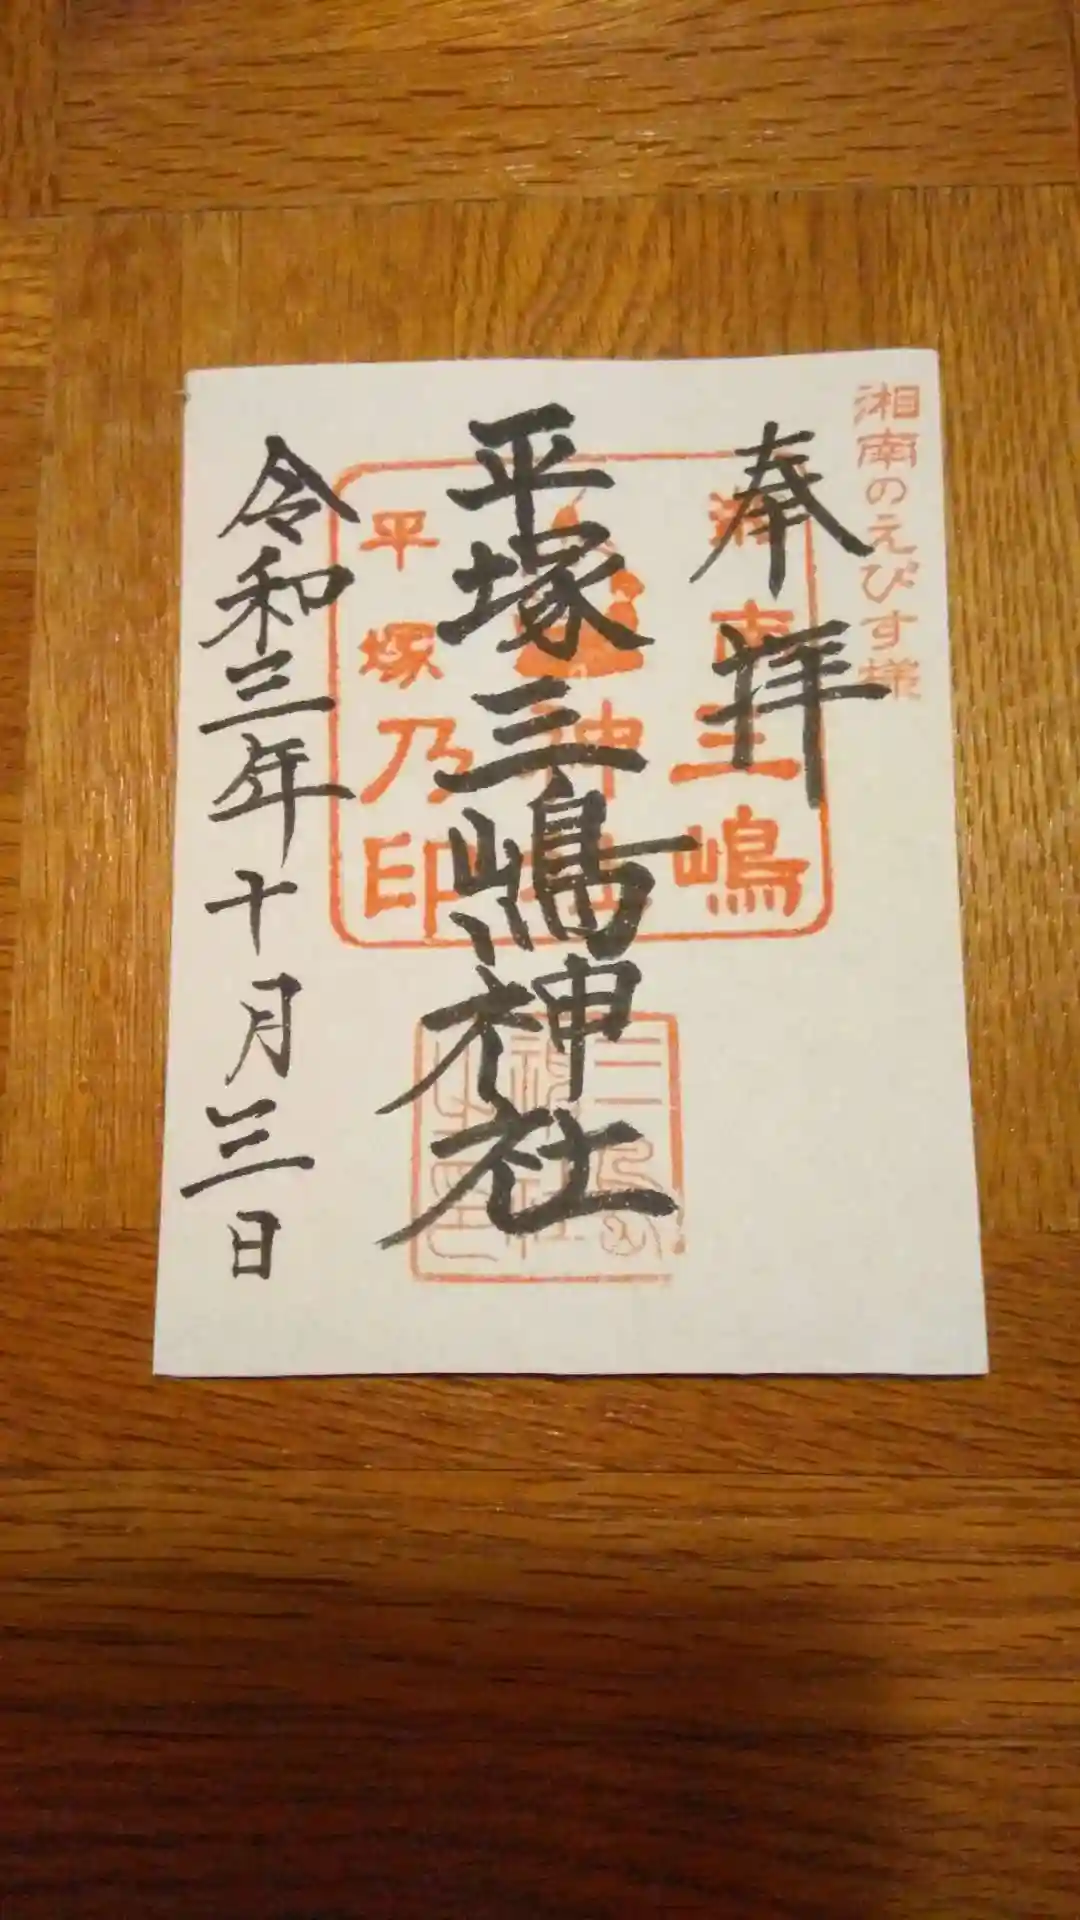 湘南のえびす様
奉拝
湘南三嶋
神社
平塚乃印
平塚三嶋神社
令和三年十月三日